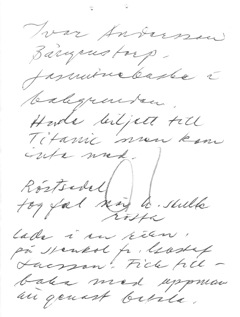 Ivar Andersson
Bärgenstorp.
i
bakgrunden.
Hade biljett till
Titanic men kom
inte med.
Röstsedel
tog fel när h. skulle
rösta
lade i en
på fr. Gustaf
Larsson. Fick till-
baka med uppman
att genast betala.